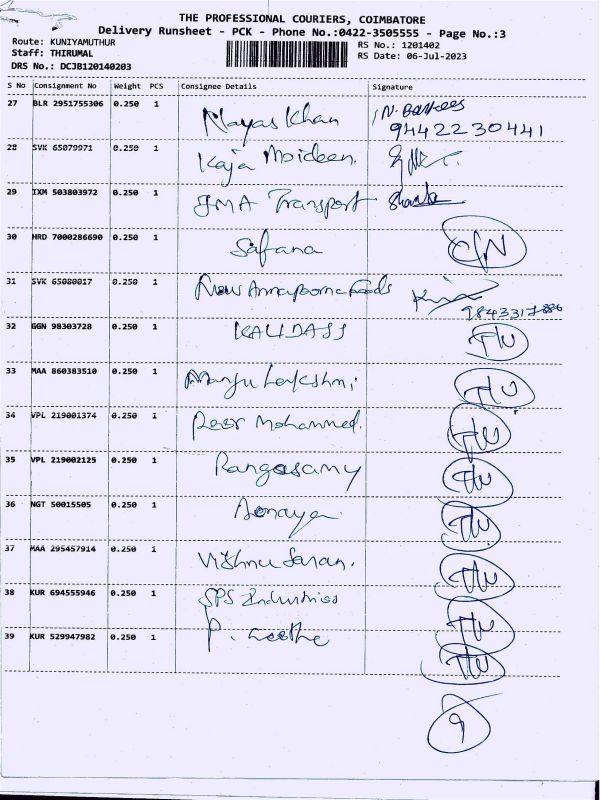 THE PROFESSIONAL COURIERS, COIMBATORE
Delivery Runsheet - PCK - Phone No.:0422-3505555 - Page No.:3
Route: KUNIYAMUTHUR
Staff: THIRUMAL
DRS No.: DCJB120140203
RS No.: 1201402
RS Date: 06-Jul-2023
S No Consignment No Weight PCS Consignee Details Signature
27 BLR 2951755306 0.250 1 Nayas Khan 9442230441
28 SVK 65079971 0.250 1 Kaja Moideen.
29 IXM 503803972 0.250 1 JMA Transport
30 HRD 7000286690 0.250 1 Safana C/N
31 SVK 65080017 0.250 1 New Annapoorna Foods
32 GGN 98303728 0.250 1 KALIDASS
33 MAA 860383510 0.250 1 Manju Lakshmi
34 VPL 219001374 0.250 1 Peer Mohammed.
35 VPL 219002125 0.250 1 Rangasamy
36 NGT 50015505 0.250 1
37 MAA 295457914 0.250 1 Vishnu Saran.
38 KUR 694555946 0.250 1 SPS Industries
39 KUR 529947982 0.250 1 P. Geetha
9